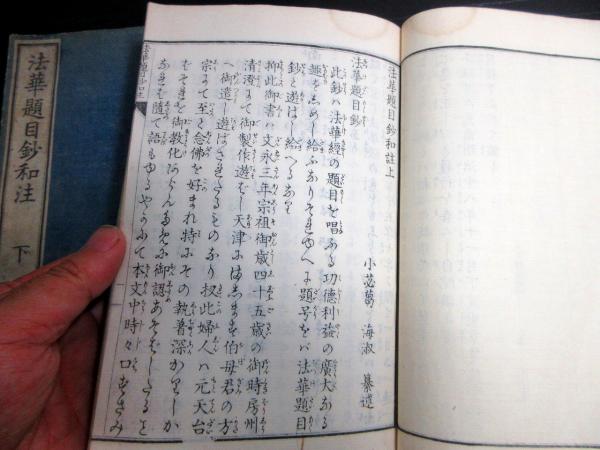 法華題目鈔和註上
小苾蒭 海淑 纂述
法華題目鈔
此鈔ハ法華經の題目を唱ふる功德利益の廣大なる
趣をしめし給ふなりそれゆへに題号をバ法華題目
鈔と遊ばし給へるなり
抑此御書ハ文永三年宗祖御歳四十五歳の御時房州
清澄にて御製作遊ばし天津にまします伯母君の方
へ御遣し遊ばされたるものなり扨此婦人ハ元天台
宗にて至と念佛を好まれ特にその執着深かりしか
をそれを御教化
なれを随て語もゆるやかにて本文中時々口ずさみ
法華題目鈔和注
下